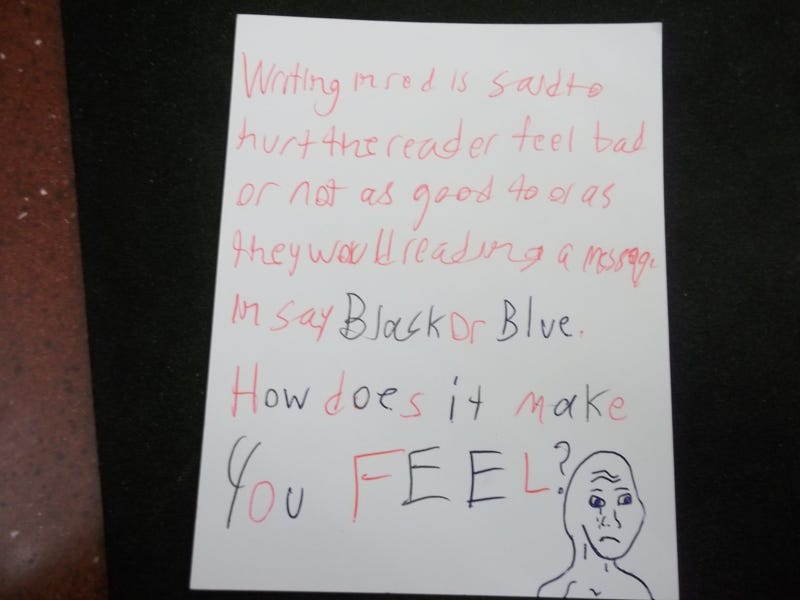 Writing in red is said to
hurt the reader feel bad
or not as good to or as
they would reading a message
in say Black or Blue.
How does it make
You FEEL?